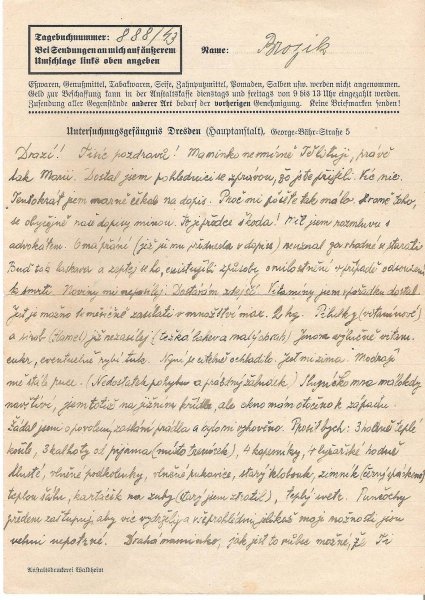 Tagebuchnummer: 888/43
Bei Sendungen an mich auf äußerem
Umschlage links oben angeben
Name: Brozik
Eßwaren, Genußmittel, Tabakwaren, Seife, Zahnputzmittel, Pomaden, Salben usw. werden nicht angenommen.
Geld zur Beschaffung kann in der Anstaltskasse dienstags und freitags von 9 bis 13 Uhr eingezahlt werden.
Zusendung aller Gegenstände anderer Art bedarf der vorherigen Genehmigung. Keine Briefmarken senden!
Untersuchungsgefängnis Dresden (Hauptanstalt), George-Bähr-Straße 5
Drazí! Tisíc pozdravů! Maminko nesmírně Tě lituji, právě
tak Manii. Dostal jsem pohlednici se zpravou, že jste přišli. Víc nic.
Tentokrát jsem marně čekal na dopis. Proč mi píšete tak málo
se obyčejně nad dopisy minou. To je přece škoda! Měl jsem rozmluvu s
advokátem. O mé přání (již jsi mu přednesla v dopise) neuznal za vhodné se starati
Buď tak laskava a zeptej se ho, existují-li způsoby omilostnění v případě odsouzení
k smrti. Noviny mi neposílej! Dostávám zdejší. Vitaminy jsem v pořádku dostal
Jest je možno ti měsíčně zasílati v množství max. 2 kg. Pilulky (vitaminové)
a sirob (Hamel) již nezasílej (těžká lahev a malý obsah) Jinou výlučně vitam.
cukr, eventuelně rybí tuk. Nyní je citelně ochladilo. Jest mi zima. Modrají
mě stále ruce. (Nedostatek pohybu a prázdný žaludek) Sluníčko mne málokdy
navštíví, jsem totiž na jižním křídle ale okno mám otočeno k západu.
Žádal jsem o povolení zaslání prádla a bylo mi vyhověno. Prosil bych: 3 košile teplé
košile, 3 kalhoty od pijama (místo trenýrek), 4 kapesníky, 4 lyžařské hodně
tlusté, vlněné podkolenky, vlněné rukavice, starý klobouk, zimník (černý)
teplou šálu, kartáček na zuby (starý jsem ztratil), teplý svetr. Punčochy
předem zaštupuj, aby víc vydržely a vše prohlédni jelikož moje možnosti jsou
velmi nepatrné. Drahá maminko, jak jest to vůbec možné, že Ti
Anstaltsdruckerei Waldheim